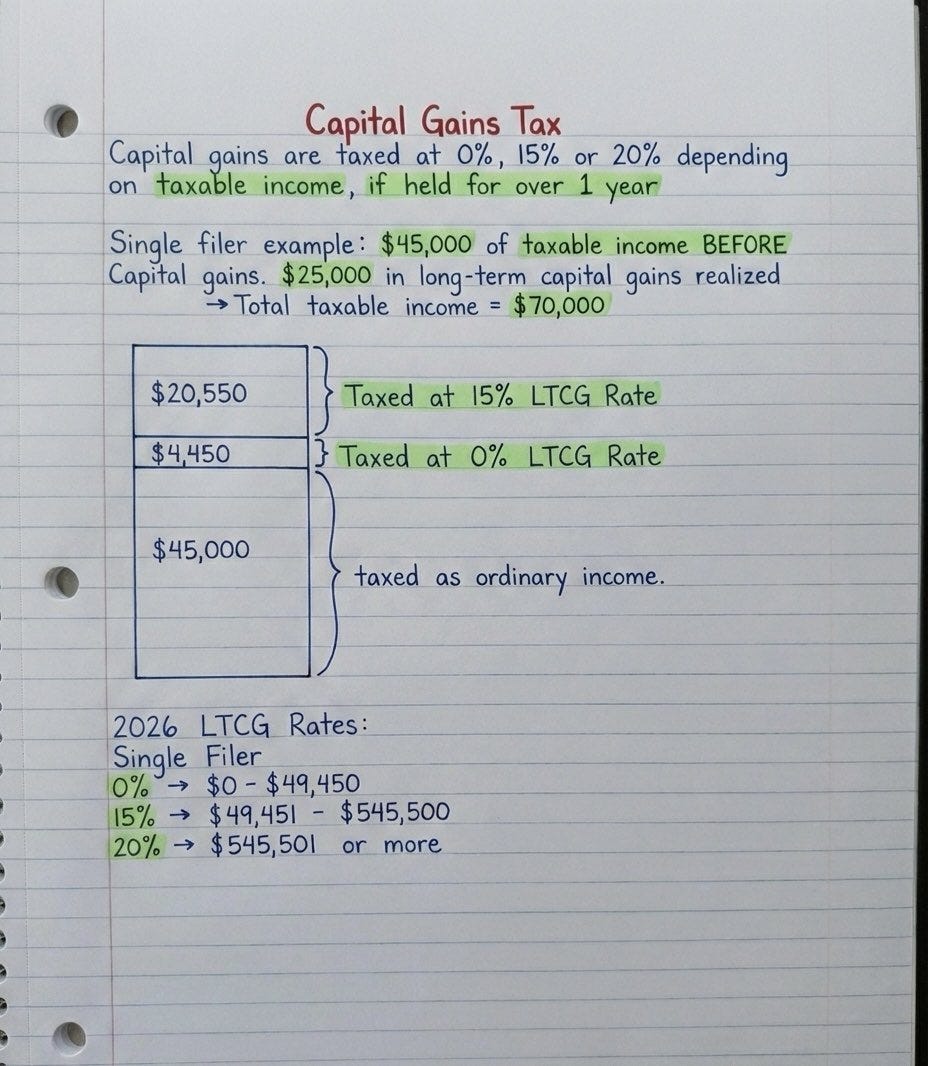 Capital Gains Tax
Capital gains are taxed at 0%, 15% or 20% depending
on taxable income, if held for over 1 year
Single filer example: $45,000 of taxable income BEFORE
Capital gains. $25,000 in long-term capital gains realized
→ Total taxable income = $70,000
$20,550 } Taxed at 15% LTCG Rate
$4,450 } Taxed at 0% LTCG Rate
$45,000 } taxed as ordinary income.
2026 LTCG Rates:
Single Filer
0% → $0 - $49,450
15% → $49,451 - $545,500
20% → $545,501 or more